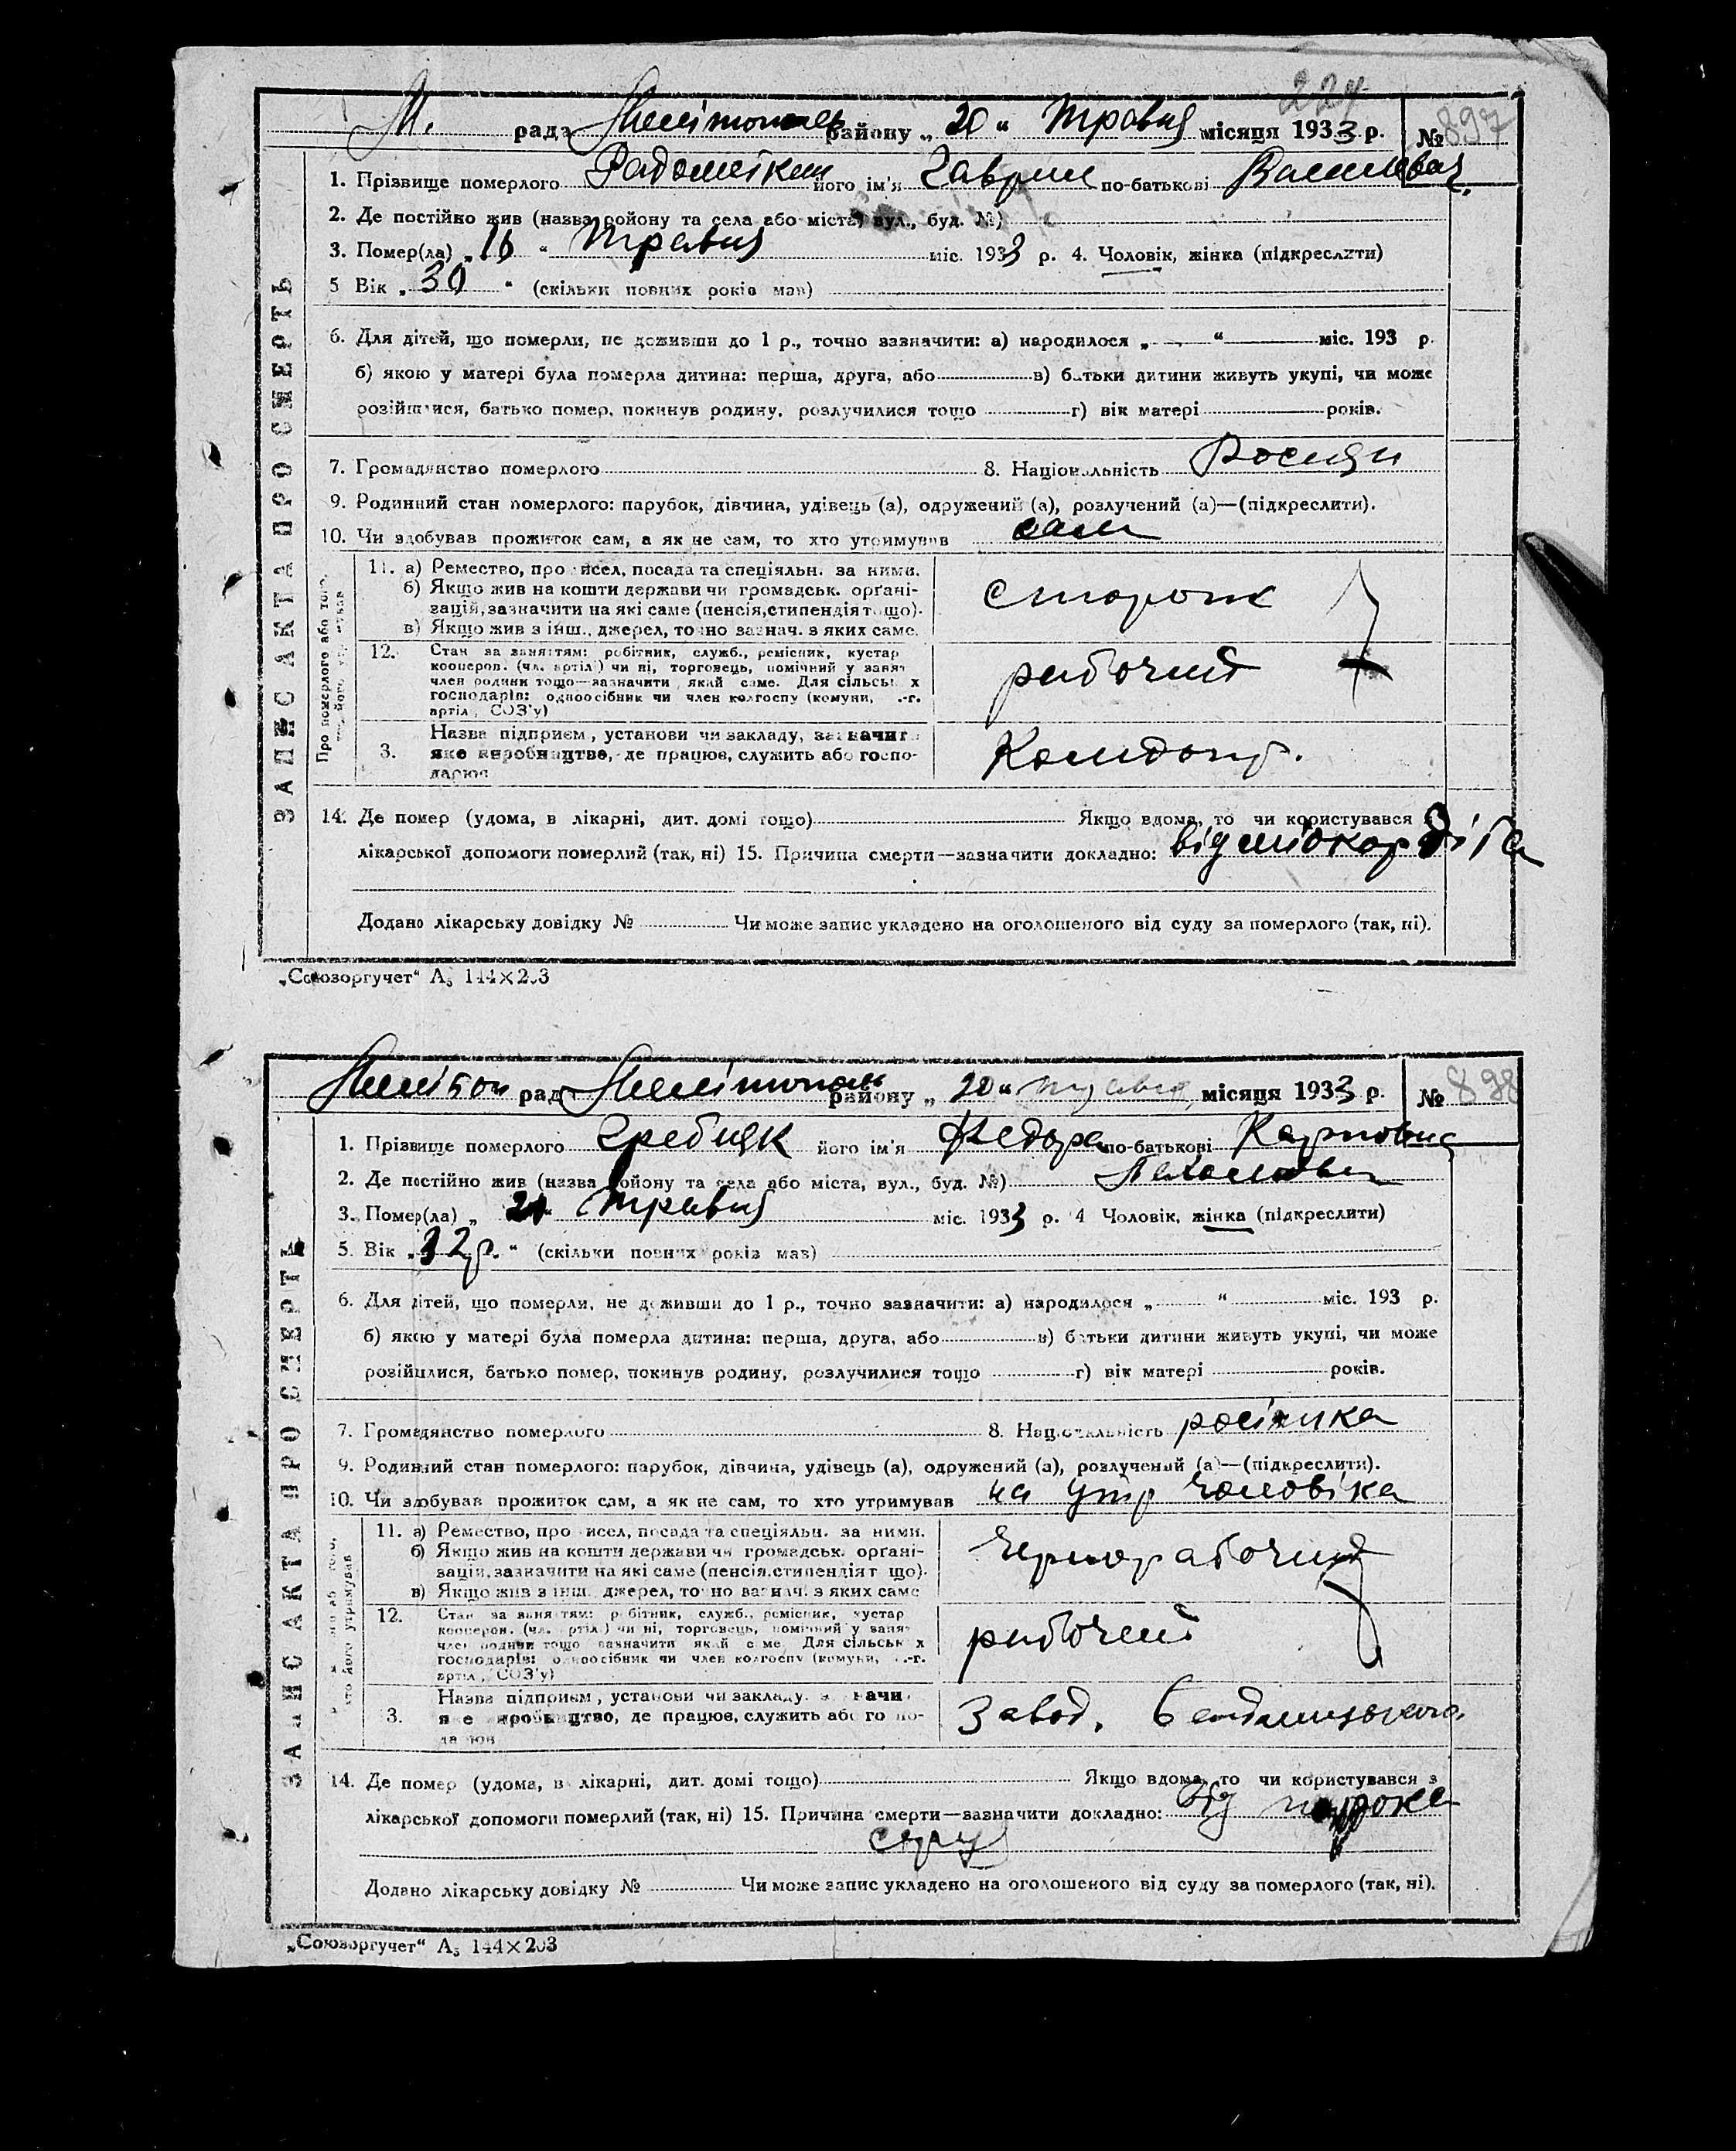 224
М. рада Мелітополь району „ 20 “ Травня місяця 1933 р. № 897
1. Прізвище померлого його ім'я Гаврил по-батькові Василевич.
2. Де постійно жив (назва району та села або міста, вул., буд. №)
3. Помер(ла) „ 16 “ Травня міс. 1933 р. 4. Чоловік, жінка (підкреслити)
5 Вік „ 30 “ (скільки повних років мав)
6. Для дітей, що померли, не доживши до 1 р., точно зазначити: а) народилося „ “ міс. 193 р.
б) якою у матері була померла дитина: перша, друга, або в) батьки дитини живуть укупі, чи може
розійшлися, батько помер, покинув родину, розлучилися тощо г) вік матері років.
7. Громадянство померлого 8. Національність Росиян
9. Родинний стан померлого: парубок, дівчина, удівець (а), одружений (а), розлучений (а)—(підкреслити).
10. Чи здобував прожиток сам, а як не сам, то хто утримував сам
ЗАПИС АКТА ПРО СМЕРТЬ
11. а) Ремество, промисел, посада та спеціяльн. за ними.
б) Якщо жив на кошти держави чи громадськ. орґані-
зацій, зазначити на які саме (пенсія, стипендія тощо).
в) Якщо жив з інш., джерел, точно зазнач. з яких саме.
сторож
12. Стан за заняттям: робітник, служб., ремісник, кустар
кооперов. (чл. артілі) чи ні, торговець, помічний у занят
член родини тощо—зазначити який саме. Для сільськ х
господарів: одноосібник чи член колгоспу (комуни, с.-г.
артіл, СОЗ'у)
рабочий
3. Назва підприєм, установи чи закладу, зазначити
яке виробництво, де працює, служить або госпо-
дарює
14. Де помер (удома, в лікарні, дит. домі тощо) Якщо вдома, то чи користувався з
лікарської допомоги померлий (так, ні) 15. Причина смерти—зазначити докладно: від міокардіта
Додано лікарську довідку № Чи може запис укладено на оголошеного від суду за померлого (так, ні).
„Союзоргучет“ А5 144×203
рада Мелітополь району „ 20 “ травня місяця 1933 р. № 898
1. Прізвище померлого Гребняк його ім'я Федора по-батькові Карповна
2. Де постійно жив (назва району та села або міста, вул., буд. №)
3. Помер(ла) „ “ Травня міс. 1933 р. 4 Чоловік, жінка (підкреслити)
5. Вік „ 32 р. “ (скільки повних років мав)
6. Для дітей, що померли, не доживши до 1 р., точно зазначити: а) народилося „ “ міс. 193 р.
б) якою у матері була померла дитина: перша, друга, або в) батьки дитини живуть укупі, чи може
розійшлися, батько помер, покинув родину, розлучилися тощо г) вік матері років.
7. Громадянство померлого 8. Національність росіянка
9. Родинний стан померлого: парубок, дівчина, удівець (а), одружений (а), розлучений (а)—(підкреслити).
10. Чи здобував прожиток сам, а як не сам, то хто утримував на утр чоловіка
ЗАПИС АКТА ПРО СМЕРТЬ
11. а) Ремество, промисел, посада та спеціяльн. за ними.
б) Якщо жив на кошти держави чи громадськ. орґані-
зацій, зазначити на які саме (пенсія, стипендія тощо).
в) Якщо жив з інш. джерел, точно зазнач. з яких саме
чернорабочий
12. Стан за заняттям: робітник, служб., ремісник, кустар
кооперов. (чл. артілі) чи ні, торговець, помічний у занят
член родини тощо зазначити який саме Для сільськ х
господарів: одноосібник чи член колгоспу (комуни, с.-г.
артіл, СОЗ'у)
рабочий
3. Назва підприєм, установи чи закладу, зазначи
яке виробництво, де працює, служить або госпо-
дарює
Завод.
14. Де помер (удома, в лікарні, дит. домі тощо) Якщо вдома, то чи користувався з
лікарської допомоги померлий (так, ні) 15. Причина смерти—зазначити докладно: Від порока
серця
Додано лікарську довідку № Чи може запис укладено на оголошеного від суду за померлого (так, ні).
„Союзоргучет“ А5 144×203